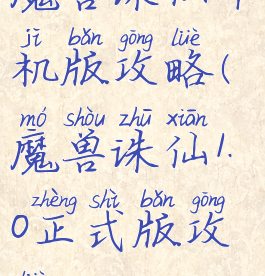 jī bǎn gōng lüè
机版攻略(
mó shòu zhū xiān
魔兽诛仙1.
zhèng shì bǎn gōng
0正式版攻